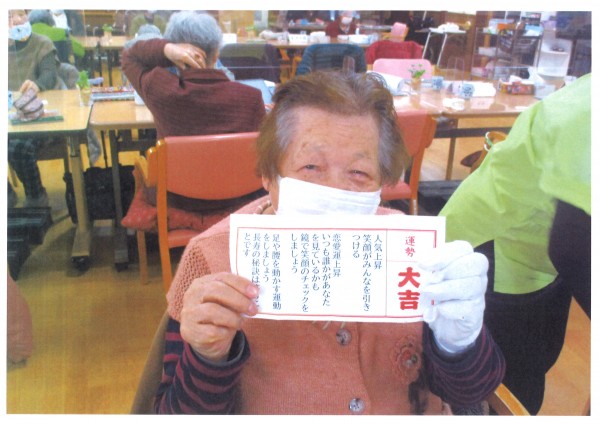 運勢
大吉
人気上昇
笑顔がみんなを引き
つける
恋愛運上昇
いつも誰かがあなた
を見ているかも
鏡で笑顔のチェックを
しましょう
足や腰を動かす運動
をしましょう
長寿の秘訣は
とです